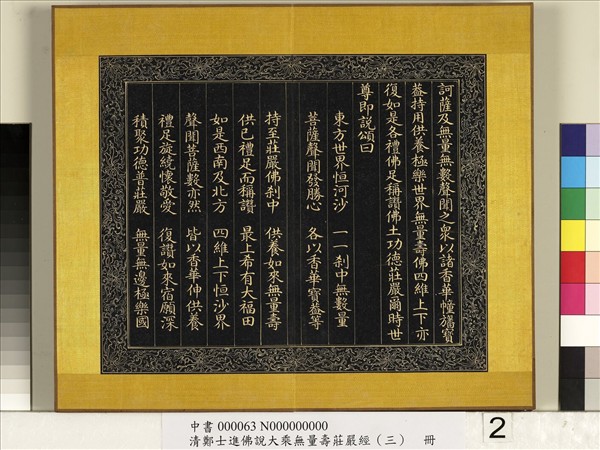 訶薩及無量無數聲聞之衆以諸香華幢旛寶
葢持用供養極樂世界無量壽佛四維上下亦
復如是各禮佛足稱讚佛土功德莊嚴爾時世
尊即說頌曰
東方世界恒河沙 一一刹中無數量
菩薩聲聞發勝心 各以香華寶葢等
持至莊嚴佛刹中 供養如來無量壽
供已禮足而稱讚 最上希有大福田
如是西南及北方 四維上下恒沙界
聲聞菩薩數亦然 皆以香華伸供養
禮足旋繞懷敬愛 復讚如來宿願深
積聚功德普莊嚴 無量無邊極樂國
中書 000063 N000000000
清鄭士進佛說大乘無量壽莊嚴經（三） 冊
2